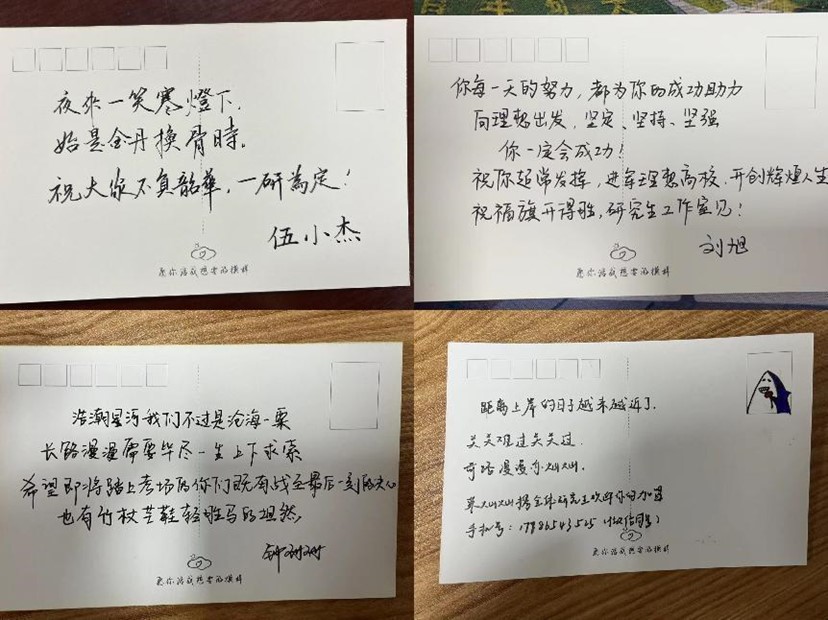 夜來一笑寒燈下,
始是金丹換骨時。
祝大家不負韶華,一研為定!
伍小杰
愿你活成想要的模样
你每一天的努力,都为你的成功助力
向理想出发,坚定、坚持、坚强
你一定会成功!
祝你超常发挥,进军理想高校,开创辉煌人生
祝福旗开得胜,研究生工作室见!
刘旭
愿你活成想要的模样
浩瀚星河我们不过是沧海一粟
长路漫漫需要毕尽一生上下求索
希望即将踏上考场的你们既有战至最后一刻的决心
也有竹杖芒鞋轻胜马的坦然,
愿你活成想要的模样
距离上岸的日子越来越近了.
关关难过关关过.
奇路漫漫亦灿灿.
手机号:17786543525(微信同号)
愿你活成想要的模样